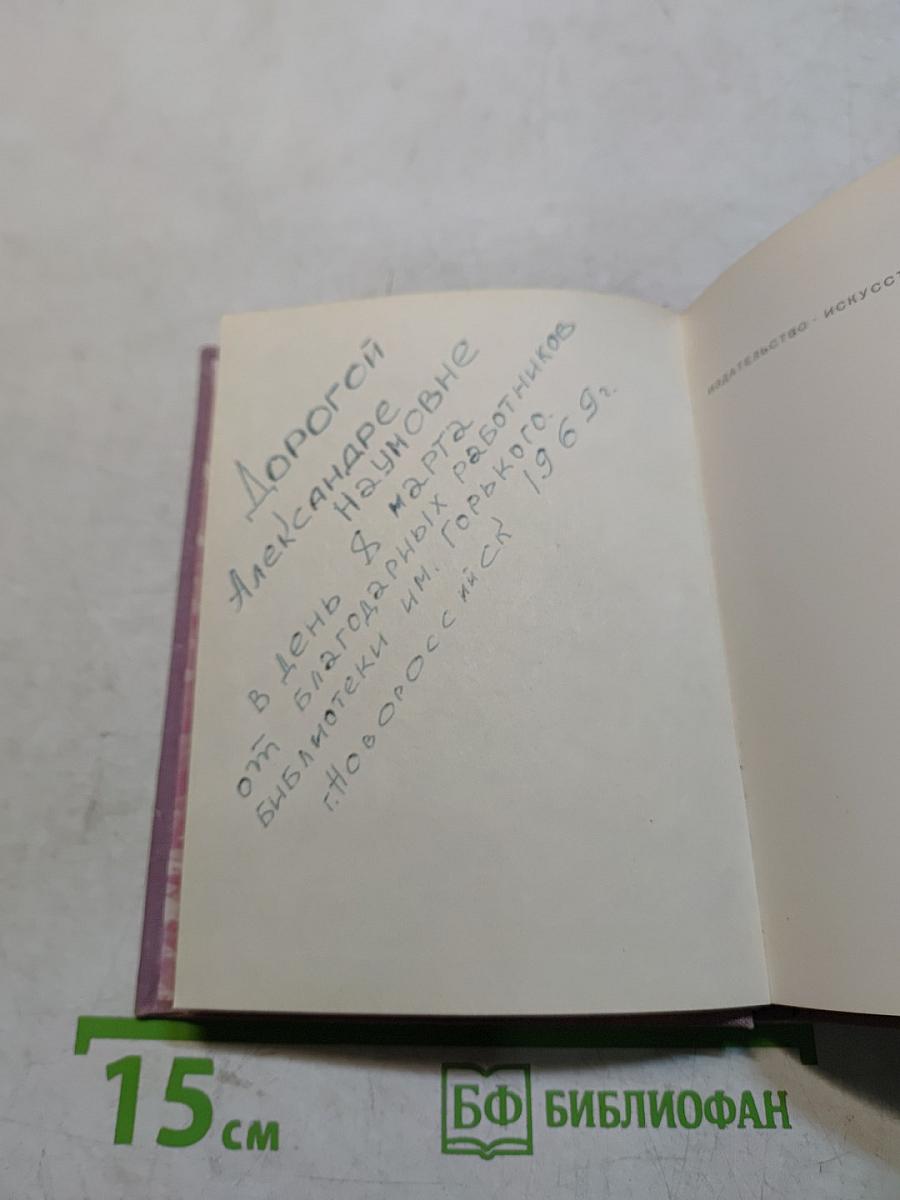 Дорогой
Александре
Наумовне
в день 8 марта
от благодарных работников
библиотеки им. Горького.
г. Новороссийск 1969 г.
ИЗДАТЕЛЬСТВО · ИСКУССТ
15 см
БФ БИБЛИОФАН